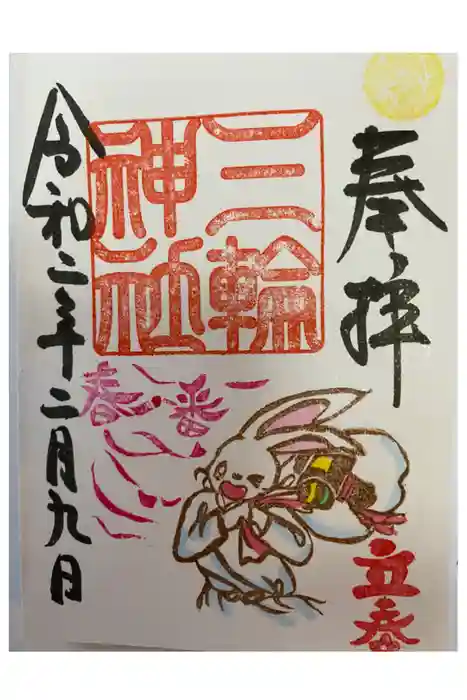 奉拝
三輪
神社
春一番
立春
令和二年二月九日